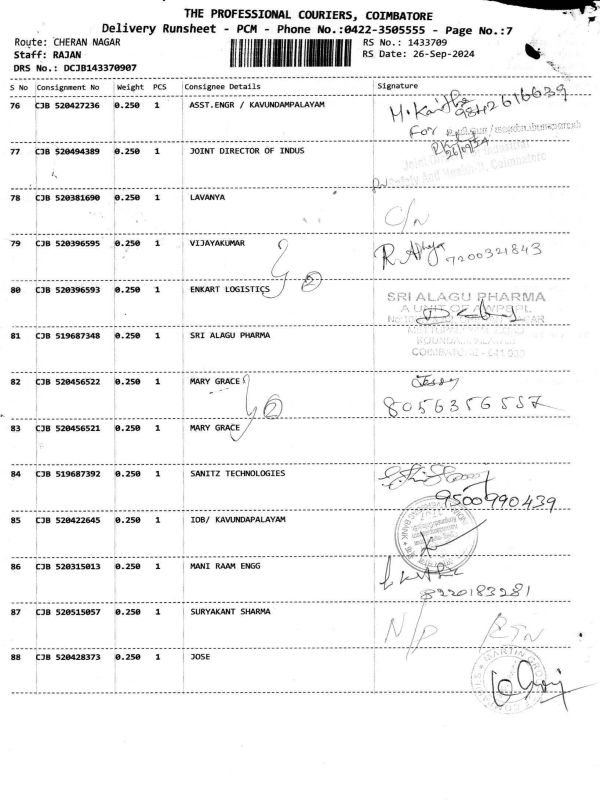 THE PROFESSIONAL COURIERS, COIMBATORE
Delivery Runsheet - PCM - Phone No.:0422-3505555 - Page No.:7
Route: CHERAN NAGAR RS No.: 1433709
Staff: RAJAN RS Date: 26-Sep-2024
DRS No.: DCJB143370907
S No Consignment No Weight PCS Consignee Details Signature
76 CJB 520427236 0.250 1 ASST.ENGR / KAVUNDAMPALAYAM
9842616639
For
77 CJB 520494389 0.250 1 JOINT DIRECTOR OF INDUS
78 CJB 520381690 0.250 1 LAVANYA C/N
79 CJB 520396595 0.250 1 VIJAYAKUMAR 7200321843
80 CJB 520396593 0.250 1 ENKART LOGISTICS 2
SRI ALAGU PHARMA
81 CJB 519687348 0.250 1 SRI ALAGU PHARMA
82 CJB 520456522 0.250 1 MARY GRACE Jessy
2 8056356557
83 CJB 520456521 0.250 1 MARY GRACE
84 CJB 519687392 0.250 1 SANITZ TECHNOLOGIES
9500990439
85 CJB 520422645 0.250 1 IOB/ KAVUNDAPALAYAM
86 CJB 520315013 0.250 1 MANI RAAM ENGG
8220183281
87 CJB 520515057 0.250 1 SURYAKANT SHARMA N/P RTN
88 CJB 520428373 0.250 1 JOSE